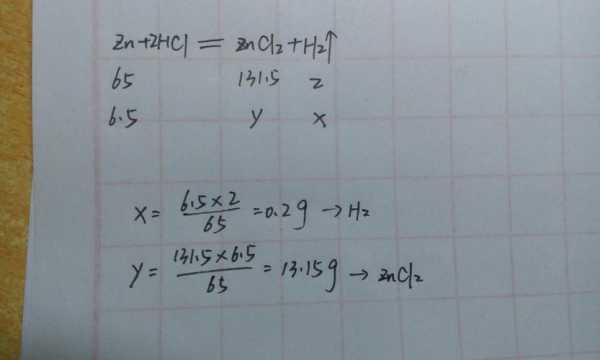 Zn+2HCl = ZnCl₂+H₂↑
65 131.5 2
6.5 y x
x= 6.5×2/65 =0.2g →H₂
y= 131.5×6.5/65 = 13.15g → ZnCl₂